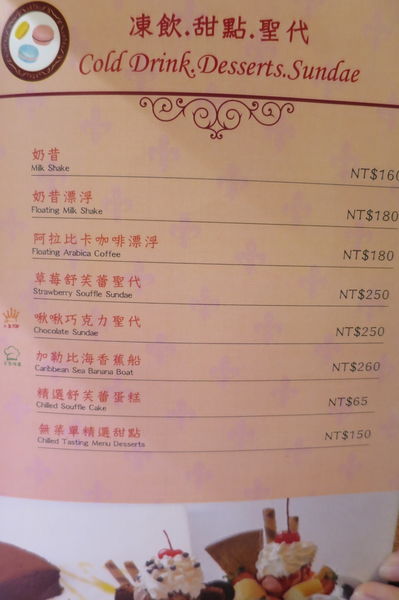 凍飲.甜點.聖代
Cold Drink.Desserts.Sundae
奶昔
Milk Shake
NT$160
奶昔漂浮
Floating Milk Shake
NT$180
阿拉比卡咖啡漂浮
Floating Arabica Coffee
NT$180
草莓舒芙蕾聖代
Strawberry Souffle Sundae
NT$250
啾啾巧克力聖代
Chocolate Sundae
NT$250
加勒比海香蕉船
Caribbean Sea Banana Boat
NT$260
精選舒芙蕾蛋糕
Chilled Souffle Cake
NT$65
無菜單精選甜點
Chilled Tasting Menu Desserts
NT$150